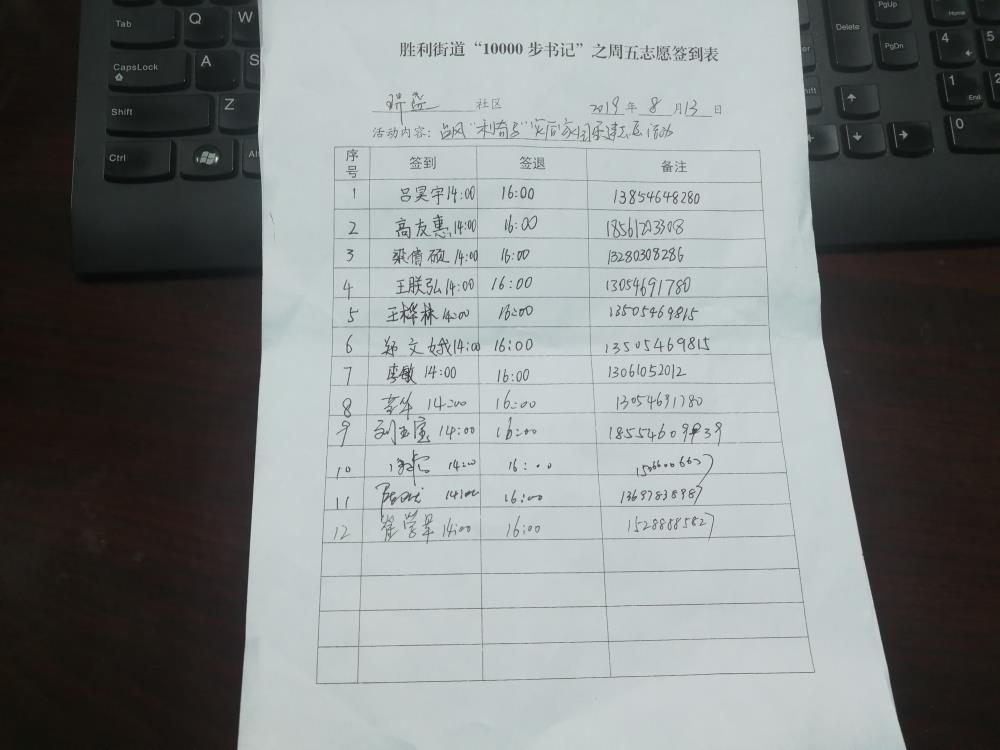 Tab
Q
W
CapsLock
A
S
Shift
Z
Ctrl
Alt
Delete
PgUp
PgDn
4
5
1
End
2
0
胜利街道“10000步书记”之周五志愿签到表
社区 2019年8月13日
活动内容：台风“利奇马”灾后家园
序号 签到 签退 备注
1 吕昊宇 14:00 16:00 13854648280
2 高友惠 14:00 16:00 18561293308
3 梁倩硕 14:00 16:00 13280308286
4 王朕弘 14:00 16:00 13054691780
5 王桦林 14:00 16:00 13505469815
6 郑文娥 14:00 16:00 13505469815
7 李敏 14:00 16:00 13061052012
8 14:00 16:00 13054691780
9 刘玉宝 14:00 16:00
10 14:00 16:00
11 14:00 16:00 13697838987
12 崔学军 14:00 16:00 15288885527